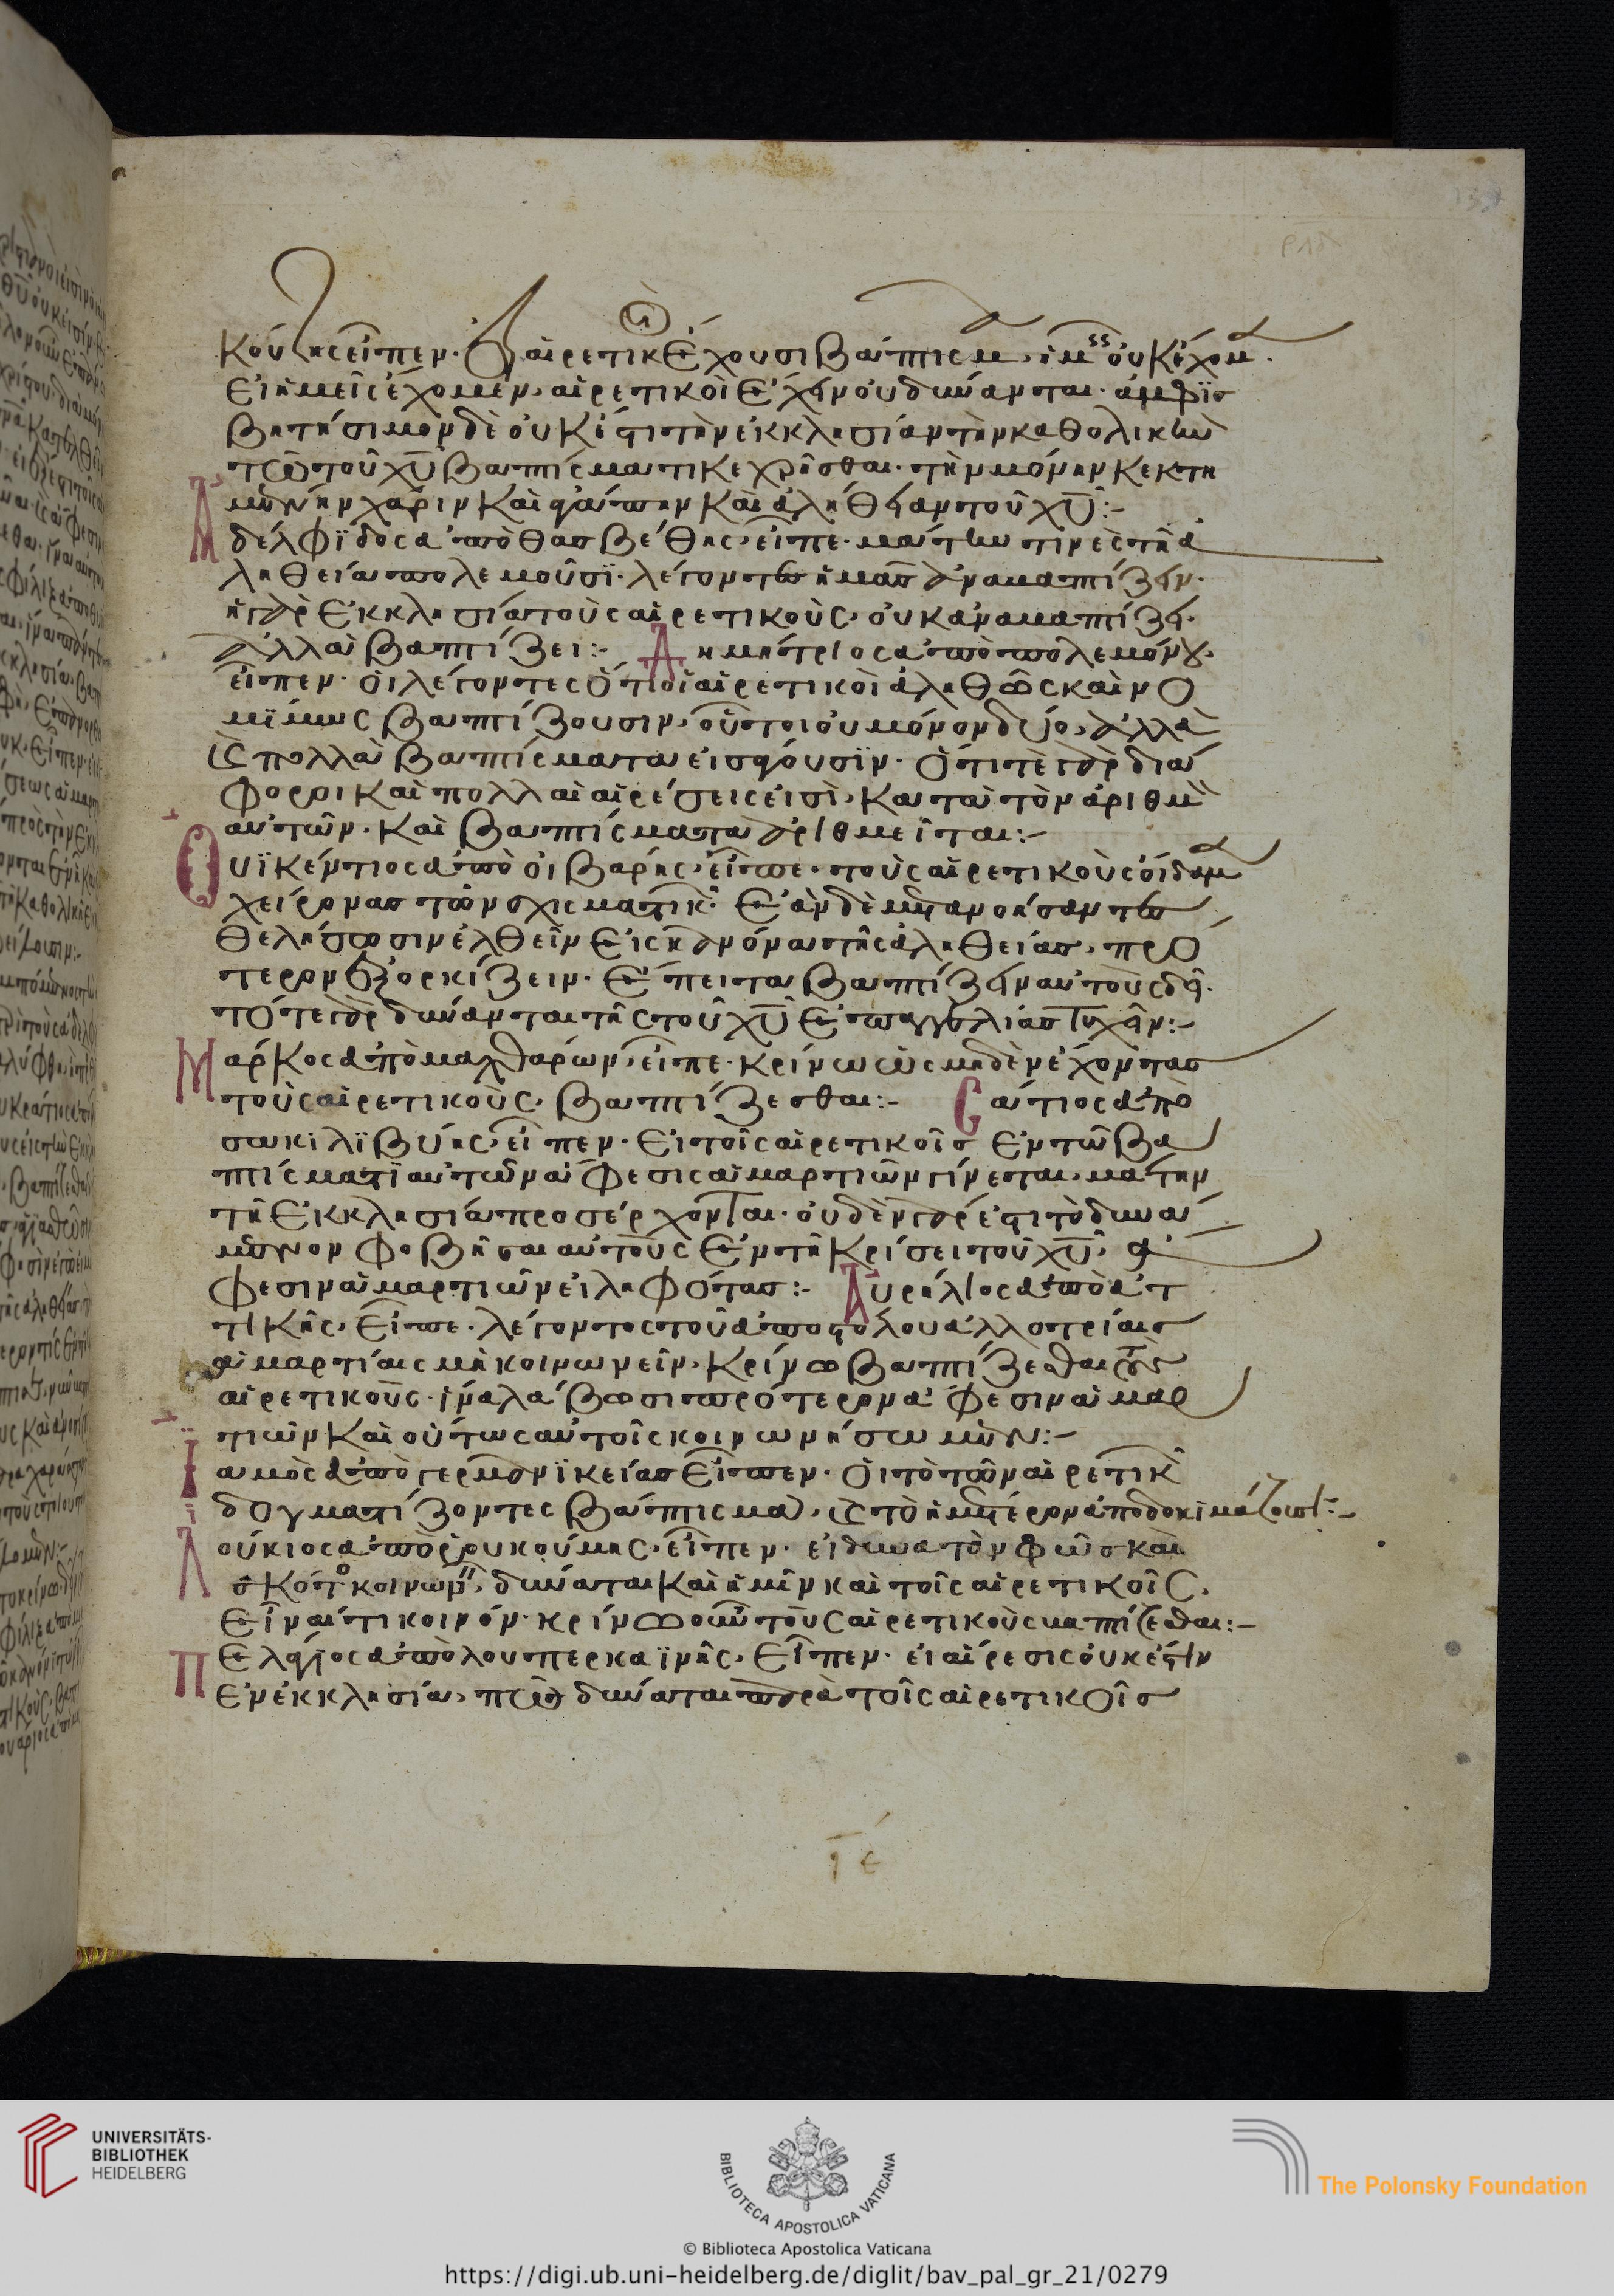 κούλης εἶπεν. εἰ αἱρετικοὶ ἔχουσι βάπτισμα, ἡμεῖς οὐκ ἔχομεν.
εἰ ἡμεῖς ἔχομεν, αἱρετικοὶ ἔχειν οὐ δύνανται. ἀμφισ
βητήσιμον δὲ οὐκ ἔστι τὴν ἐκκλησίαν τὴν καθολικὴν
τῶ τοῦ χῦ βαπτίσματι κεχρῆσθαι. τὴν μόνην κεκτη
μένην χάριν καὶ στάσιν καὶ ἀλήθειαν τοῦ χῦ:-
Ἀδελφϊδος ἀπὸ θασβέθης, εἶπε. μάτην τινὲς τῆ ἀ
ληθεία πολεμοῦσϊ. λέγοντες ἡμᾶς ἀναβαπτίζειν.
ἡ γὰρ ἐκκλησία τοὺς αἱρετικοὺς, οὐκ ἀναβαπτίζει.
ἀλλὰ βαπτίζει:- Δημήτριος ἀπὸ πολεμόνου.
εἶπεν. οἱ λέγοντες ὅτι οἱ αἱρετικοὶ ἀληθῶς καὶ νο
μϊμως βαπτίζουσιν, οὗτοι οὐ μόνον δύο, ἀλλὰ
καὶ πολλὰ βαπτίσματα εἰσάγουσϊν. ὅτι τὲ γὰρ διά
φοροι καὶ πολλαὶ αἱρέσεις εἰσὶ, κατὰ τὸν ἀριθμὸν
αὐτῶν. καὶ βαπτίσματα ἀριθμεῖται:-
Οὐϊκέντιος ἀπὸ οἱβαρῆς, εἶπε. τοὺς αἱρετικοὺς οἴδαμεν
χείρονας τῶν σχισματικῶν. ἐὰν δὲ μετανοήσαντες
θελήσωσιν ἐλθεῖν εἰς ἡμόνα τῆς ἀληθείας, πρό
τερον ἐξορκίζειν. ἔπειτα βαπτίζειν αὐτοὺς δεῖ.
τότε γὰρ δύνανται τῆς τοῦ χῦ ἐπαγγελίας τυχεῖν:-
Μάρκος ἀπὸ μακθαρων, εἶπε. κρίνω ὡς μηδὲν ἔχοντας
τοὺς αἱρετικοὺς, βαπτίζεσθαι:- Σάτιος ἀπὸ
σωκιλϊβύης, εἶπεν. εἰ τοῖς αἱρετικοῖς ἐν τῶ βα
πτίσματι αὐτῶν ἄφεσις ἁμαρτιῶν γίνεται, μάτην
τῆ ἐκκλησία προσέρχονται. οὐδὲν γάρ ἐστι τὸ δυνά
μενον φοβῆσαι αὐτοὺς ἐν τῆ κρίσει τοῦ χῦ, ἄ
φεσιν ἁμαρτιῶν εἰληφότας:- Αὐρήλιος ἀπὸ ἀτ
τικῆς, εἶπε. λέγοντος τοῦ ἀποστόλου ἀλλοτρίαις
ἁμαρτίαις μὴ κοινωνεῖν, κρίνω βαπτίζεσθαι τοὺς
αἱρετικοὺς. ἵνα λάβωσι πρότερον ἄφεσιν ἁμαρ
τιῶν καὶ οὕτως αὐτοῖς κοινωνήσωμεν:-
Ἰαμὸς ἀπὸ γερμανϊκείας εἶπεν. οἱ τὸ τῶν αἱρετικῶν
δογματίζοντες βάπτισμα, καὶ τὸ ἡμέτερον ἀποδοκιμάζουσι:-
Λούκιος ἀπὸ ρουκούμης, εἶπεν. εἰ δυνατὸν φῶς καὶ
σκότος κοινωνεῖν, δύναται καὶ ἡμῖν καὶ τοῖς αἱρετικοῖς,
εἶναί τι κοινόν. κρίνω οὖν τοὺς αἱρετικοὺς βαπτίζεσθαι:-
Πελάγιος ἀπὸ λουπερκαϊνῆς, εἶπεν. εἰ αἵρεσις οὐκ ἔστιν
ἐν ἐκκλησία, πῶς δύναται παρὰ τοῖς αἱρετικοῖς
ιε
UNIVERSITÄTS-
BIBLIOTHEK
HEIDELBERG
BIBLIOTECA APOSTOLICA VATICANA
The Polonsky Foundation
© Biblioteca Apostolica Vaticana
https://digi.ub.uni-heidelberg.de/diglit/bav_pal_gr_21/0279